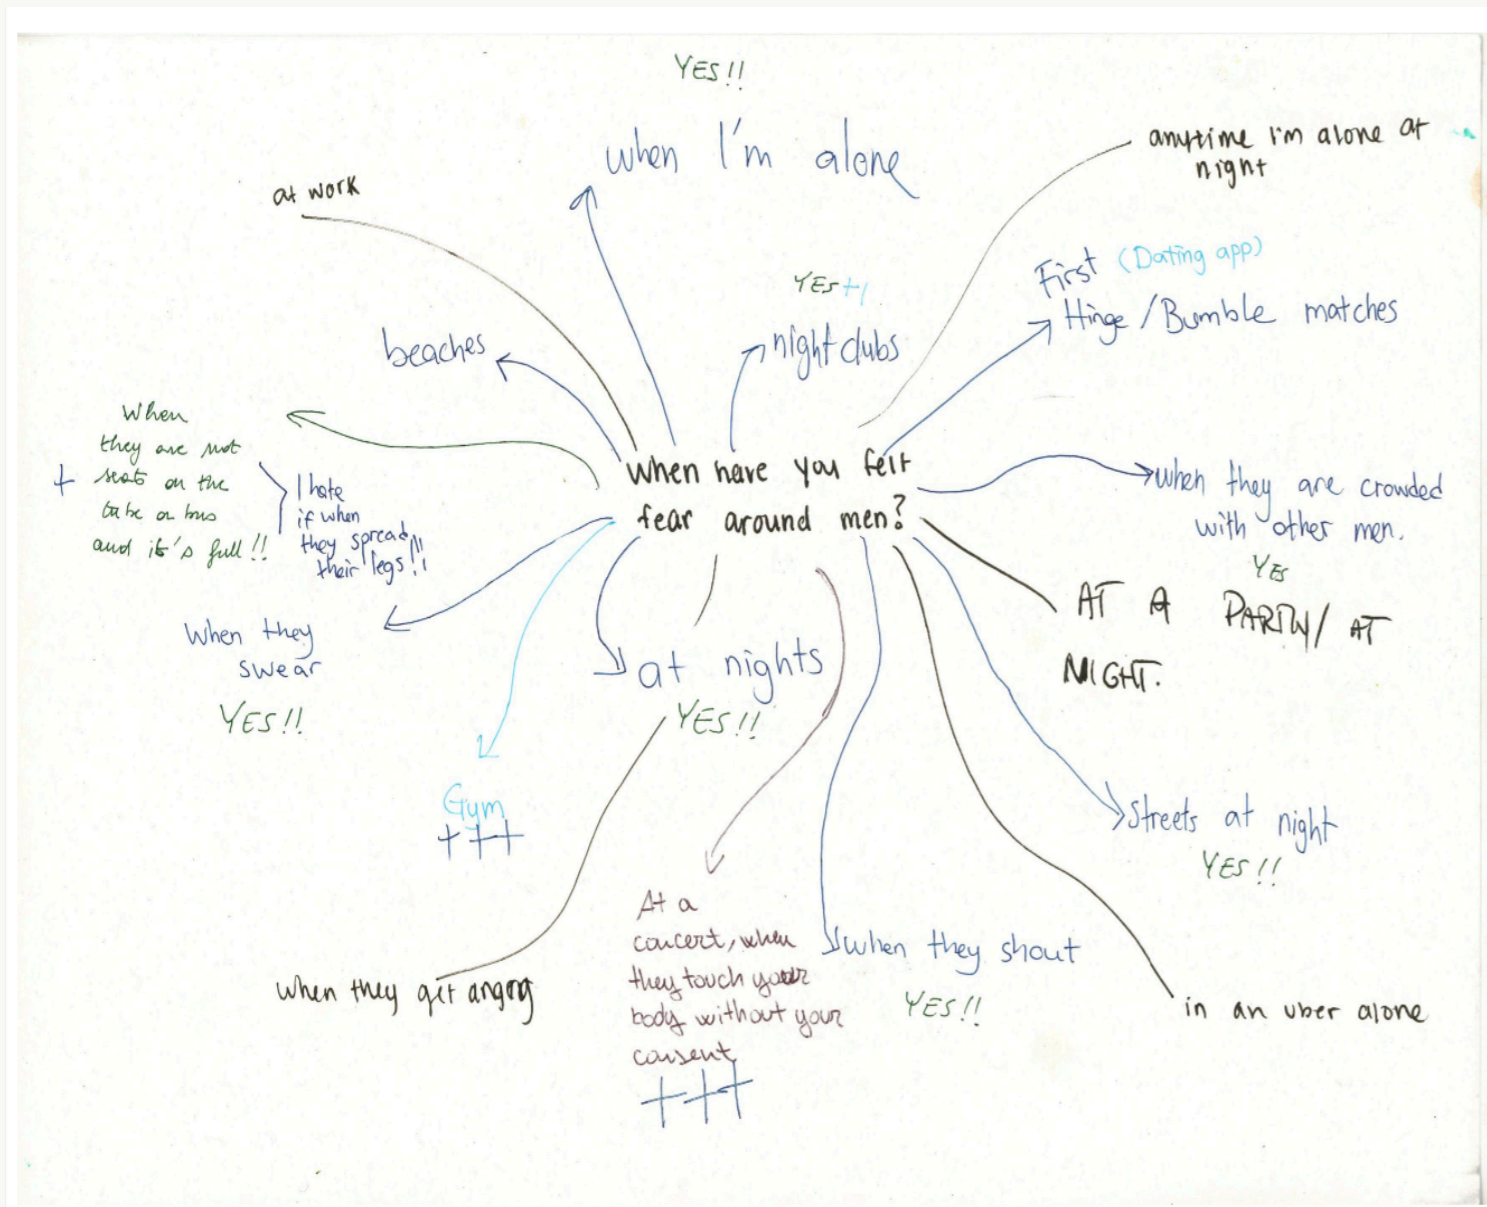 YES!!
when I'm alone
anytime I'm alone at
night
at work
First (Dating app)
Hinge / Bumble matches
YES +1
night clubs
beaches
When
they are not
seats on the
tube or bus
and it's full !!
+
I hate
if when
they spread
their legs!!!
When have you felt
fear around men?
when they are crowded
with other men.
YES
AT A PARTY/ AT
NIGHT.
When they
swear
YES!!
at nights
YES!!
Gym
+++
Streets at night
YES!!
At a
concert, when
they touch your
body without your
consent
+++
when they shout
YES!!
when they get angry
in an uber alone